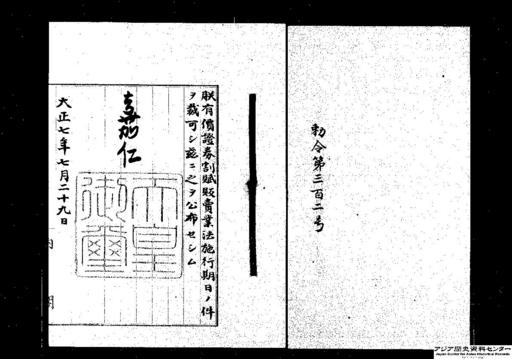 勅令第三百二号
朕有價證券割賦販賣業法施行期日ノ件
ヲ裁可シ茲ニ之ヲ公布セシム
嘉仁
天皇御璽
大正七年七月二十九日
内閣
アジア歴史資料センター
Japan Center for Asian Historical Records